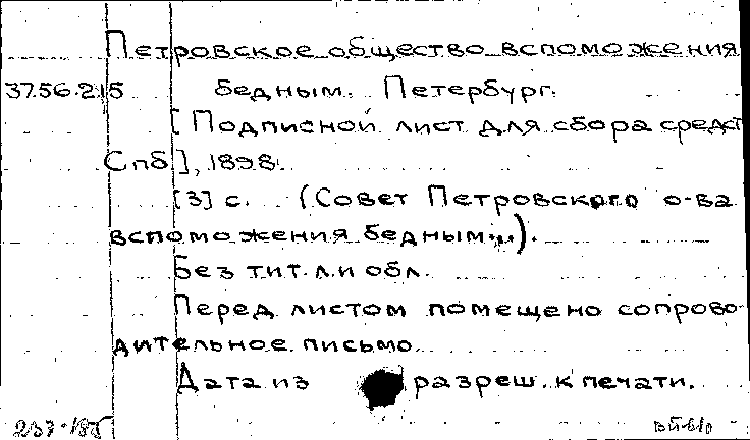 Петровское общество вспоможения
37.56.2.15 бедным. Петербург.
[Подписной лист для сбора средст
Спб], 1898.
[3] с. (Совет Петровского о-ва
вспоможения бедным...).
Без тит. л. и обл.
Перед листом помещено сопрово-
дительное письмо.
Дата из разреш. к печати.